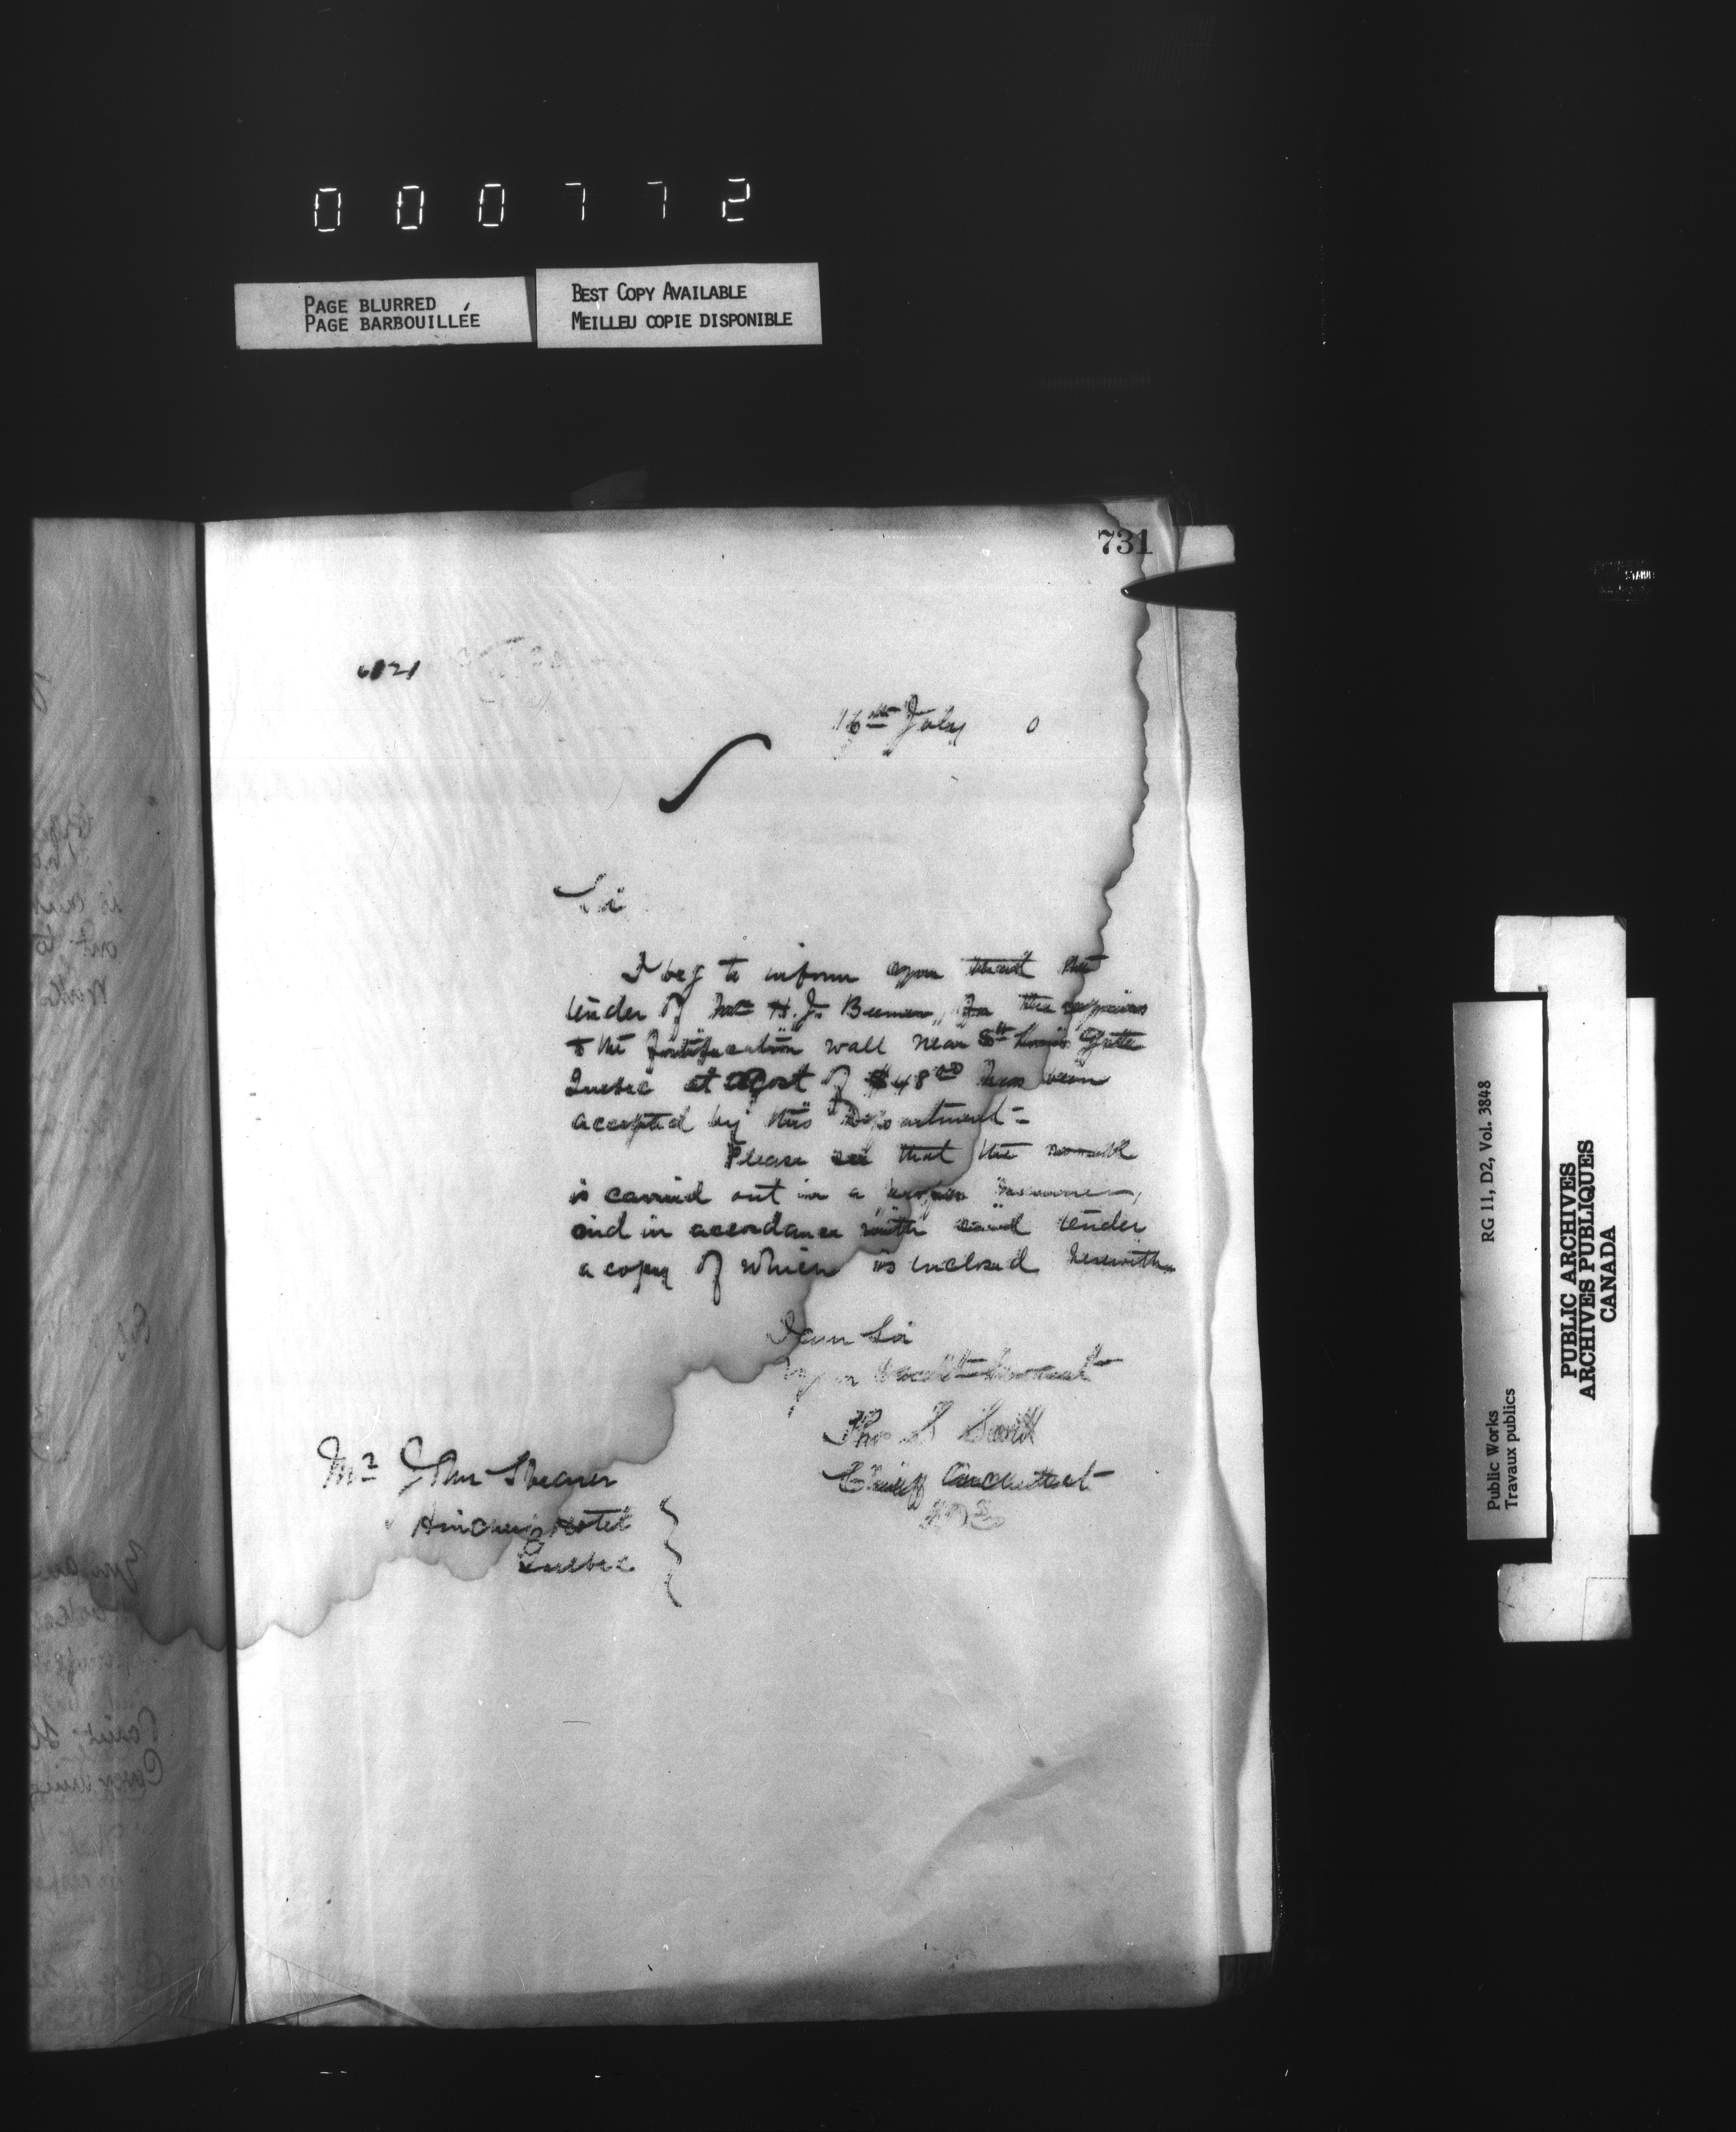 000772
PAGE BLURRED
PAGE BARBOUILLÉE
BEST COPY AVAILABLE
MEILLEU COPIE DISPONIBLE
731
6121
16th July 0
Sir
I beg to inform you that the
tender of Mr H.J. Beemer, for the repairs
to the fortification wall near St Louis Gate
Quebec at a Cost of $48 00 has been
accepted by this Department -
Please see that the work
is carried out in a proper manner,
and in accordance with said tender
a copy of which is inclosed herewith
I am Sir
your obedt Servant
Thos S Scott
Chief Architect
Mr John Shearer
Hotel
Quebec
RG 11, D2, Vol. 3848
Public Works
Travaux publics
PUBLIC ARCHIVES
ARCHIVES PUBLIQUES
CANADA